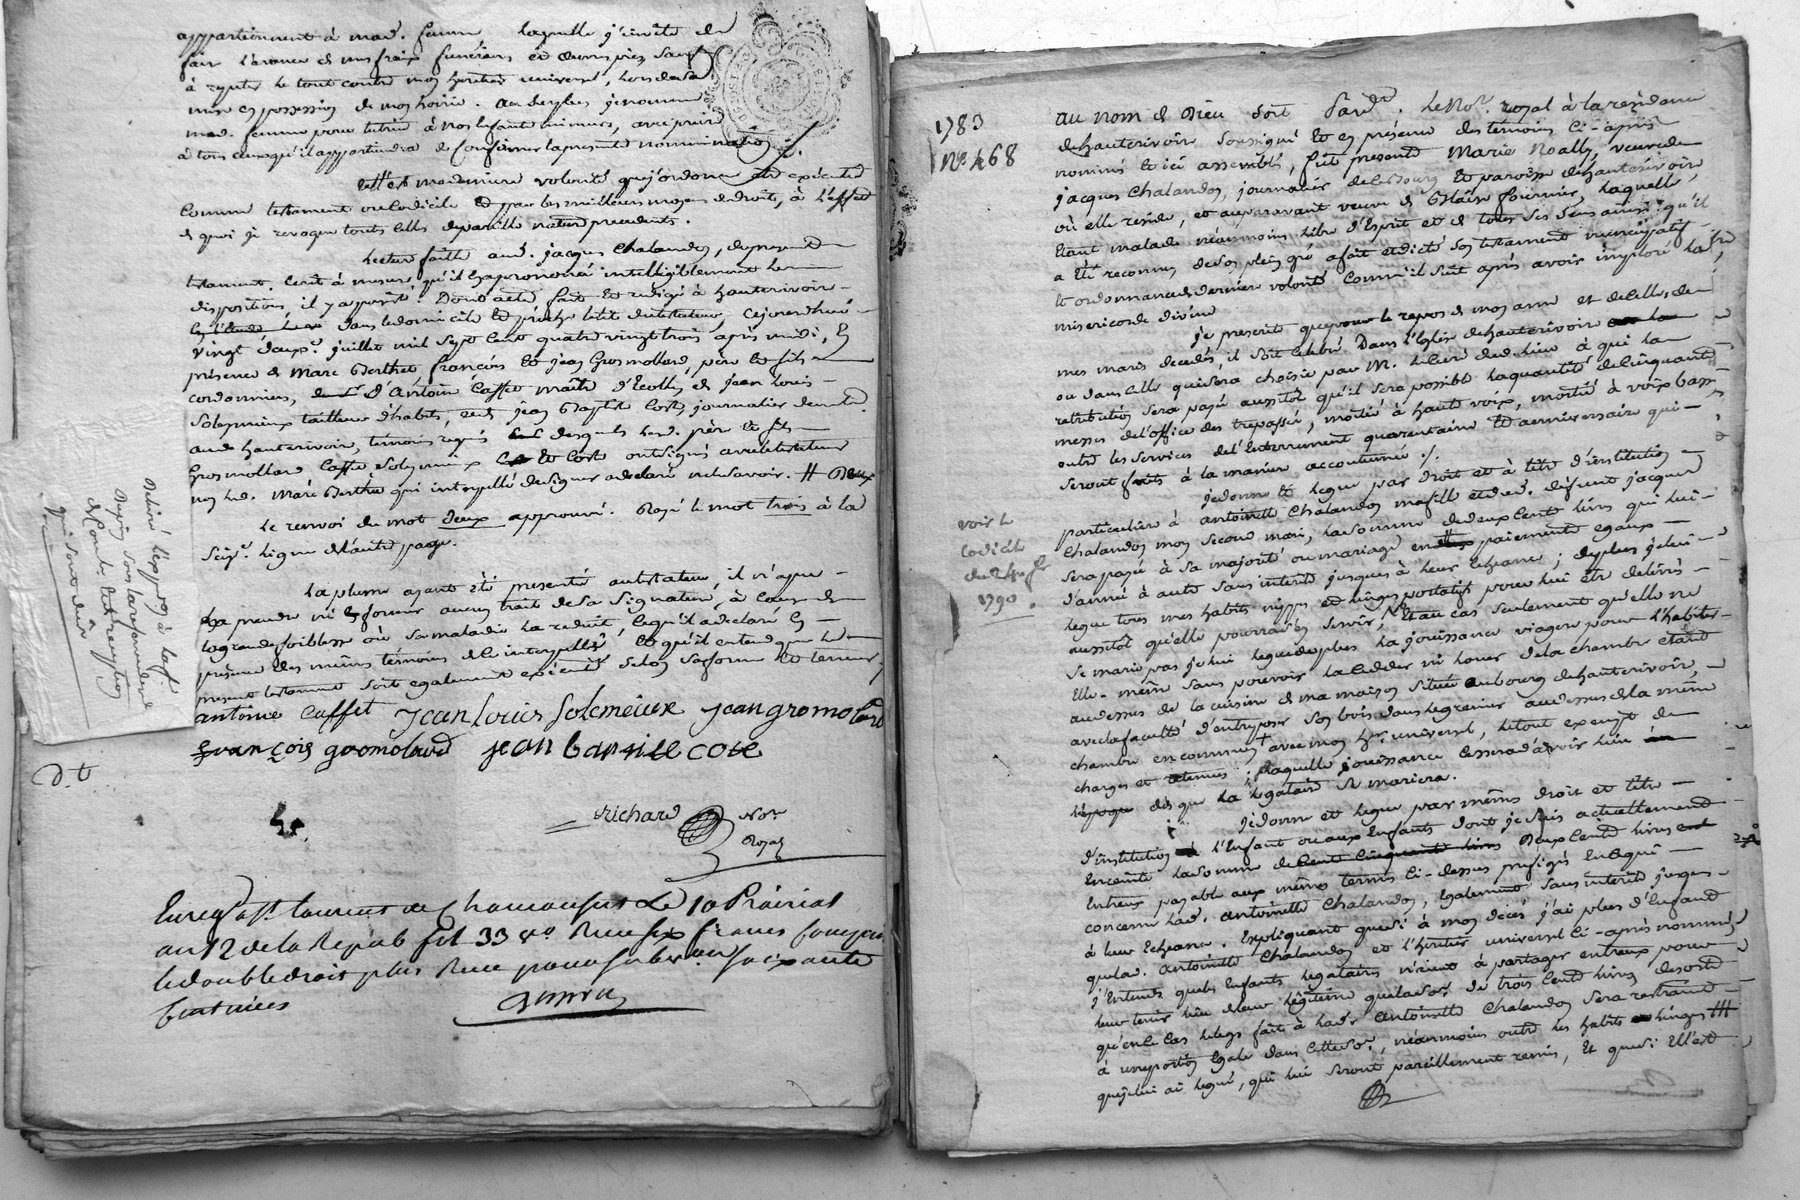 appartiennent à mad. femme laquelle j'invite de
faire l'avance de mes fraix funéraires et œuvres pies sauf
à répéter le tout contre mon heritier universel, lors de sa
mise en possession de mon hoirie. Au surplus je nomme
mad. femme pour tutrice à nos enfants mineurs, avec prière
à tous ceux qu'il appartiendra de confirmer la presente nomination ./.
Telle est ma derniere volonté que j'ordonne etre executée
comme testament ou codicile et par les meilleurs moyens de droit, à l'effet
de quoi je revoque toutes celles de pareille nature precedentes.
Lecture faitte aud. jacques chalandon, du present
testament, écrit à mesure qu'il en a prononcé intelligiblement les
dispositions, il y a persisté. Dont acte fait et redigé à hauterivoire
dans le domicile et proche le lit du testateur, cejourd'hui
vingt deux juillet mil sept cent quatre vingt trois après midi, En
présence de Marc Berthet françois et jean Gromollard, père et fils
cordonniers, d'Antoine Caffet maitre d'Ecolle, de jean louis
Solemieux tailleur d'habits, et de jean Baptiste Coste journalier demeurt.
aud. hauterivoire, temoins requis desquels lesd. père et fils
Gromollard Caffet Solemieux et Coste ont signé avec
non led. Marc Berthet qui interpellé de signer a declaré ne le savoir. # Deux
le renvoi du mot deux approuvé. Rayé le mot trois à la
seize. ligne de l'autre page.
La plume ayant été presentée au testateur, il n'a pu
la prendre ni en former aucun trait de sa signature, à cause de
la grande foiblesse où sa maladie l'a reduit, ce qu'il a declaré En
présence des mêmes témoins de ce interpellé, et qu'il entend que le
present testament soit egalement executé selon sa forme et teneur.
antoine Caffet jean louis Solemieux jean gromolard
françois gromolard jean bartite cote
D. t
richard Nore
Royal
Enregé à St laurent de Chamousset Le 10 Prairial
an 12 de la Repub fol 33 vo Reçu six francs
le double droit plus Reçu pour subv. on soixante
centimes
Délivré
Depuis sous la
qui sont dûs
1783
No. 468
au nom de Dieu soit Pardt. le Nore. royal à la residence
de hauterivoire soussigné et en présence des témoins ci-après
nommés et ici assemblés, fut presente Marie Noally, veuve de
jacques Chalandon, journalier de ce bourg et paroisse de hauterivoire
où elle reside, et auparavant veuve de Blaise fournier, laquelle,
étant malade néanmoins libre d'esprit et de tous ses sens ainsi qu'il
a été reconnu, de son plein gré a fait et dicté son testament nuncupatif
et ordonnance de derniere volonté comme il suit après avoir imploré la
misericorde divine
je prescris que pour le repos de mon ame et de celles de
mes maris decedés, il soit celebré dans l'Eglise de hauterivoire
ou dans celle qui sera choisie par M. le curé dud. lieu à qui la
retribution sera payée aussitôt qu'il sera possible la quantité de cinquante
messes de l'office des trepassés, moitié à haute voix, moitié à voix basse
outre les services de l'enterrement quarantaine et anniversaire qui
seront faits à la maniere accoutumée ./.
voir le
codicile
du 24 fr
1790.
je donne et legue par droit et à titre d'institution
particuliere à antoinette Chalandon ma fille et dud. defunt jacques
Chalandon mon second mari, la somme de deux cents livres qui lui
sera payée à sa majorité ou mariage en paiements egaux
d'année à autre sans interêt jusques à leur echeance ; de plus je lui
legue tous mes habits nippes et linges portatifs pour lui être delivrés
aussitôt qu'elle pourra s'en servir, et au cas seulement qu'elle ne
se marie pas je lui legue de plus la jouissance viagere pour l'habiter
elle-même sans pouvoir la ceder ni louer de la chambre etant
au dessus de la cuisine de ma maison située au bourg de hauterivoire,
avec la faculté d'entreposer son bois dans le grenier au dessus de la même
chambre en commun avec mon hr. universel, le tout exempt de
charges et retenues ; laquelle jouissance cessera d'avoir lieu
dès que la legataire se mariera.
je donne et legue par mêmes droit et titre
d'institution à l'enfant ou aux Enfants dont je suis actuellement
Enceinte la somme de cent cinquante livres Deux cents livres
Entr'eux payable aux mêmes termes ci-dessus prefigés En ce qui
concerne lad. antoinette Chalandon, également sans interêt jusques
à leur Echeance. Expliquant que si à mon decès j'ai plus d'Enfants
que lad. antoinette Chalandon et l'heritier universel ci-après nommé
j'Entends que les Enfants legataires n'aient à partager entr'eux pour
leur tenir lieu de leur légitime que la som. de trois cents livres, de sorte
qu'en ce cas le legs fait à lad. antoinette Chalandon sera restraint
à une portion Egale dans cette som., néanmoins outre les habits linges
que je lui ai legué, qui lui seront pareillement remis, et que si Elle est